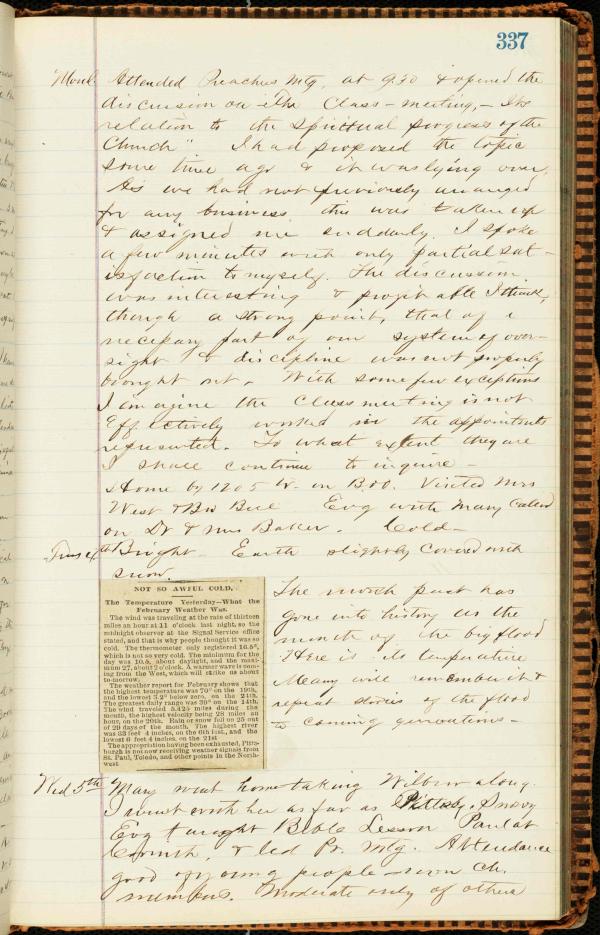 337
Mond. Attended Preachers Mtg. at 9.30 & opened the
discussion on "The Class-meeting, - Its
relation to the Spiritual progress of the
Church" I had proposed the topic
some time ago & it was lying over.
As we had not previously arranged
for any business, this was taken up
& assigned me suddenly. I spoke
a few minutes with only partial sat-
isfaction to myself. The discussion
was interesting & profitable I think,
though a strong point, that of a
necessary part of our system of over-
sight & discipline was not properly
brought out. With some few exceptions
I imagine the Class meeting is not
Effectively worked in the appointments
represented. To what extent they are
I shall continue to inquire -
Home by 12 05 on B.OO. Visited Mrs
West & Bro Bue Evg with Mary Called
on Dr & Mrs Baker. Cold -
Tues 4th Bright - Earth slightly covered with
snow.
NOT SO AWFUL COLD.
The Temperature Yesterday—What the
February Weather Was.
The wind was traveling at the rate of thirteen
miles an hour at 11 o'clock last night, so the
midnight observer at the Signal Service office
stated, and that is why people thought it was so
cold. The thermometer only registered 16.5°,
which is not so very cold. The minimum for the
day was 10.5, about daylight, and the maxi-
mum 27, about 2 o'clock. A warmer wave is com-
ing from the West, which will strike us about
to-morrow.
The weather report for February shows that
the highest temperature was 70° on the 19th,
and the lowest 3.2° below zero, on the 24th.
The greatest daily range was 39° on the 14th.
The wind traveled 5,425 miles during the
month, the highest velocity being 28 miles an
hour, on the 20th. Rain or snow fell on 25 out
of 29 days of the month. The highest river
was 33 feet 4 inches, on the 6th inst., and the
lowest 6 feet 4 inches, on the 21st
The appropriation having been exhausted, Pitts-
burgh is not now receiving weather signals from
St. Paul, Toledo, and other points in the North-
west
The month past has
gone into history as the
month of the big flood
Here is its temperature
Many will remember it &
repeat stories of the flood
to coming generations -
Wed 5th Mary went home taking Wilbur along.
I went with her as far as Pittsbg. Snowy
Evg taught Bible Lesson Paul at
Corinth, & led Pr. Mtg. Attendance
good of young people - seven ch.
members. Moderate only of others